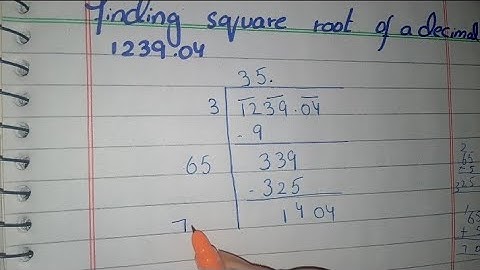 Finding square root of a decimal
1239.04
35.
3 1239.04
- 9
65 339
- 325
1404
7
2
65
25
325